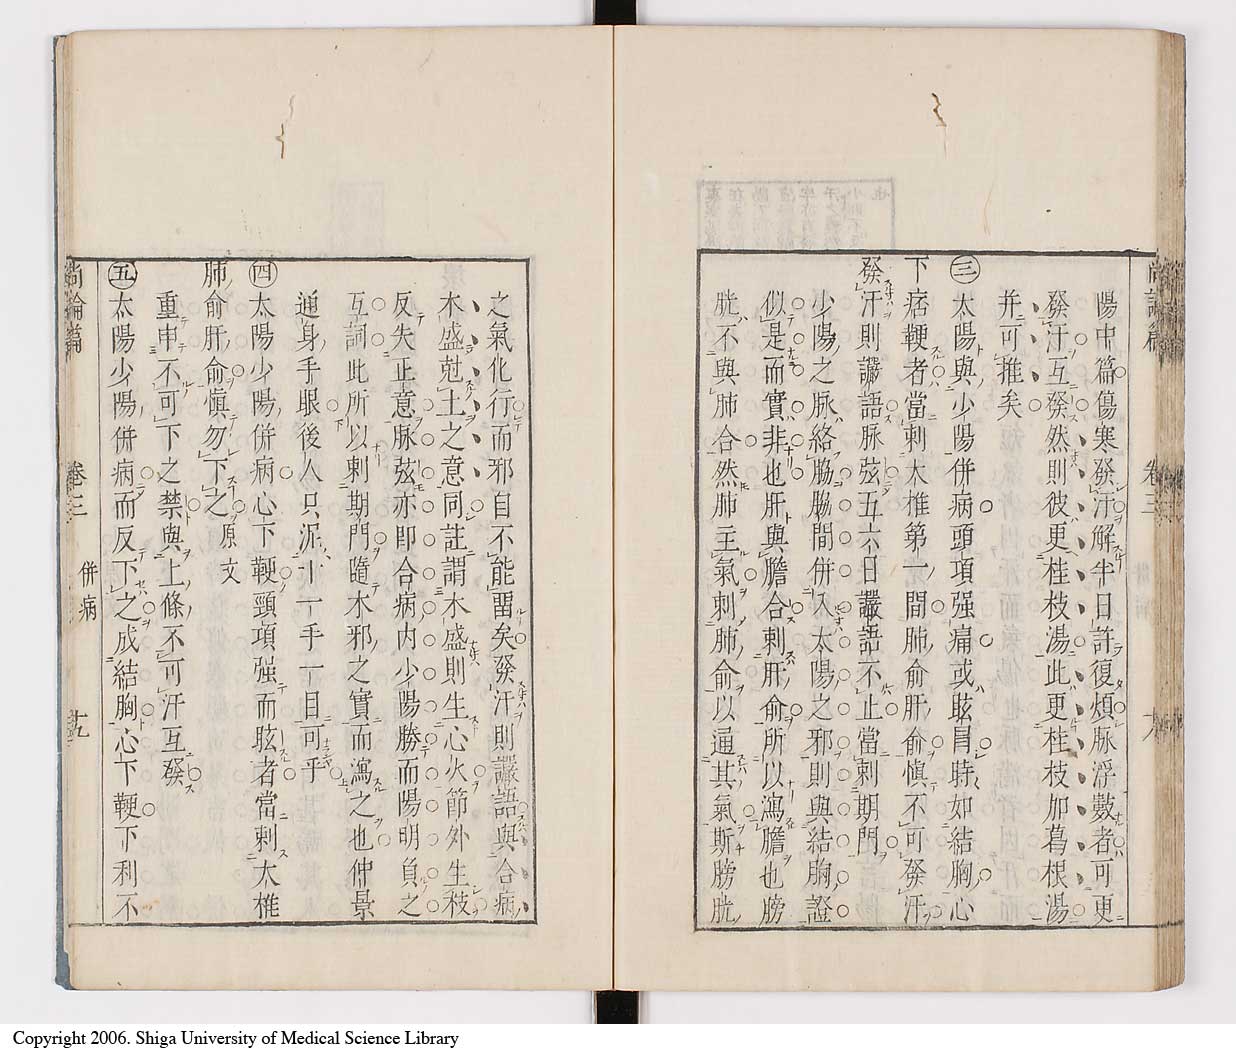 陽中篇傷寒發汗解半日許復煩脉浮數者可更
發汗互發然則彼更桂枝湯此更桂枝加葛根湯
并可推矣
㊂太陽與少陽併病頭項强痛或眩冒時如結胸心
下痞鞕者當刺大椎第一間肺俞肝俞慎不可發汗
發汗則讝語脉弦五六日讝語不止當刺期門
少陽之脉絡脇脇間併入太陽之邪則與結胸證
似是而實非也肝與膽合刺肝俞所以瀉膽也膀
胱不與肺合然肺主氣刺肺俞以通其氣斯膀胱
尚論篇
卷三
之氣化行而邪自不能畱矣發汗則讝語與合病
木盛尅土之意同註謂木盛則生心火節外生枝
反失正意脉弦亦即合病内少陽勝而陽明負之
互詞此所以刺期門隨木邪之實而瀉之也仲景
通身手眼後人只泥一手一目可乎
㊃太陽少陽併病心下鞕頸項强而眩者當刺大椎
肺俞肝俞慎勿下之原文
重申不可下之禁與上條不可汗互發
㊄太陽少陽併病而反下之成結胸心下鞕下利不
尚論篇
卷三
併病
十九
Copyright 2006. Shiga University of Medical Science Library